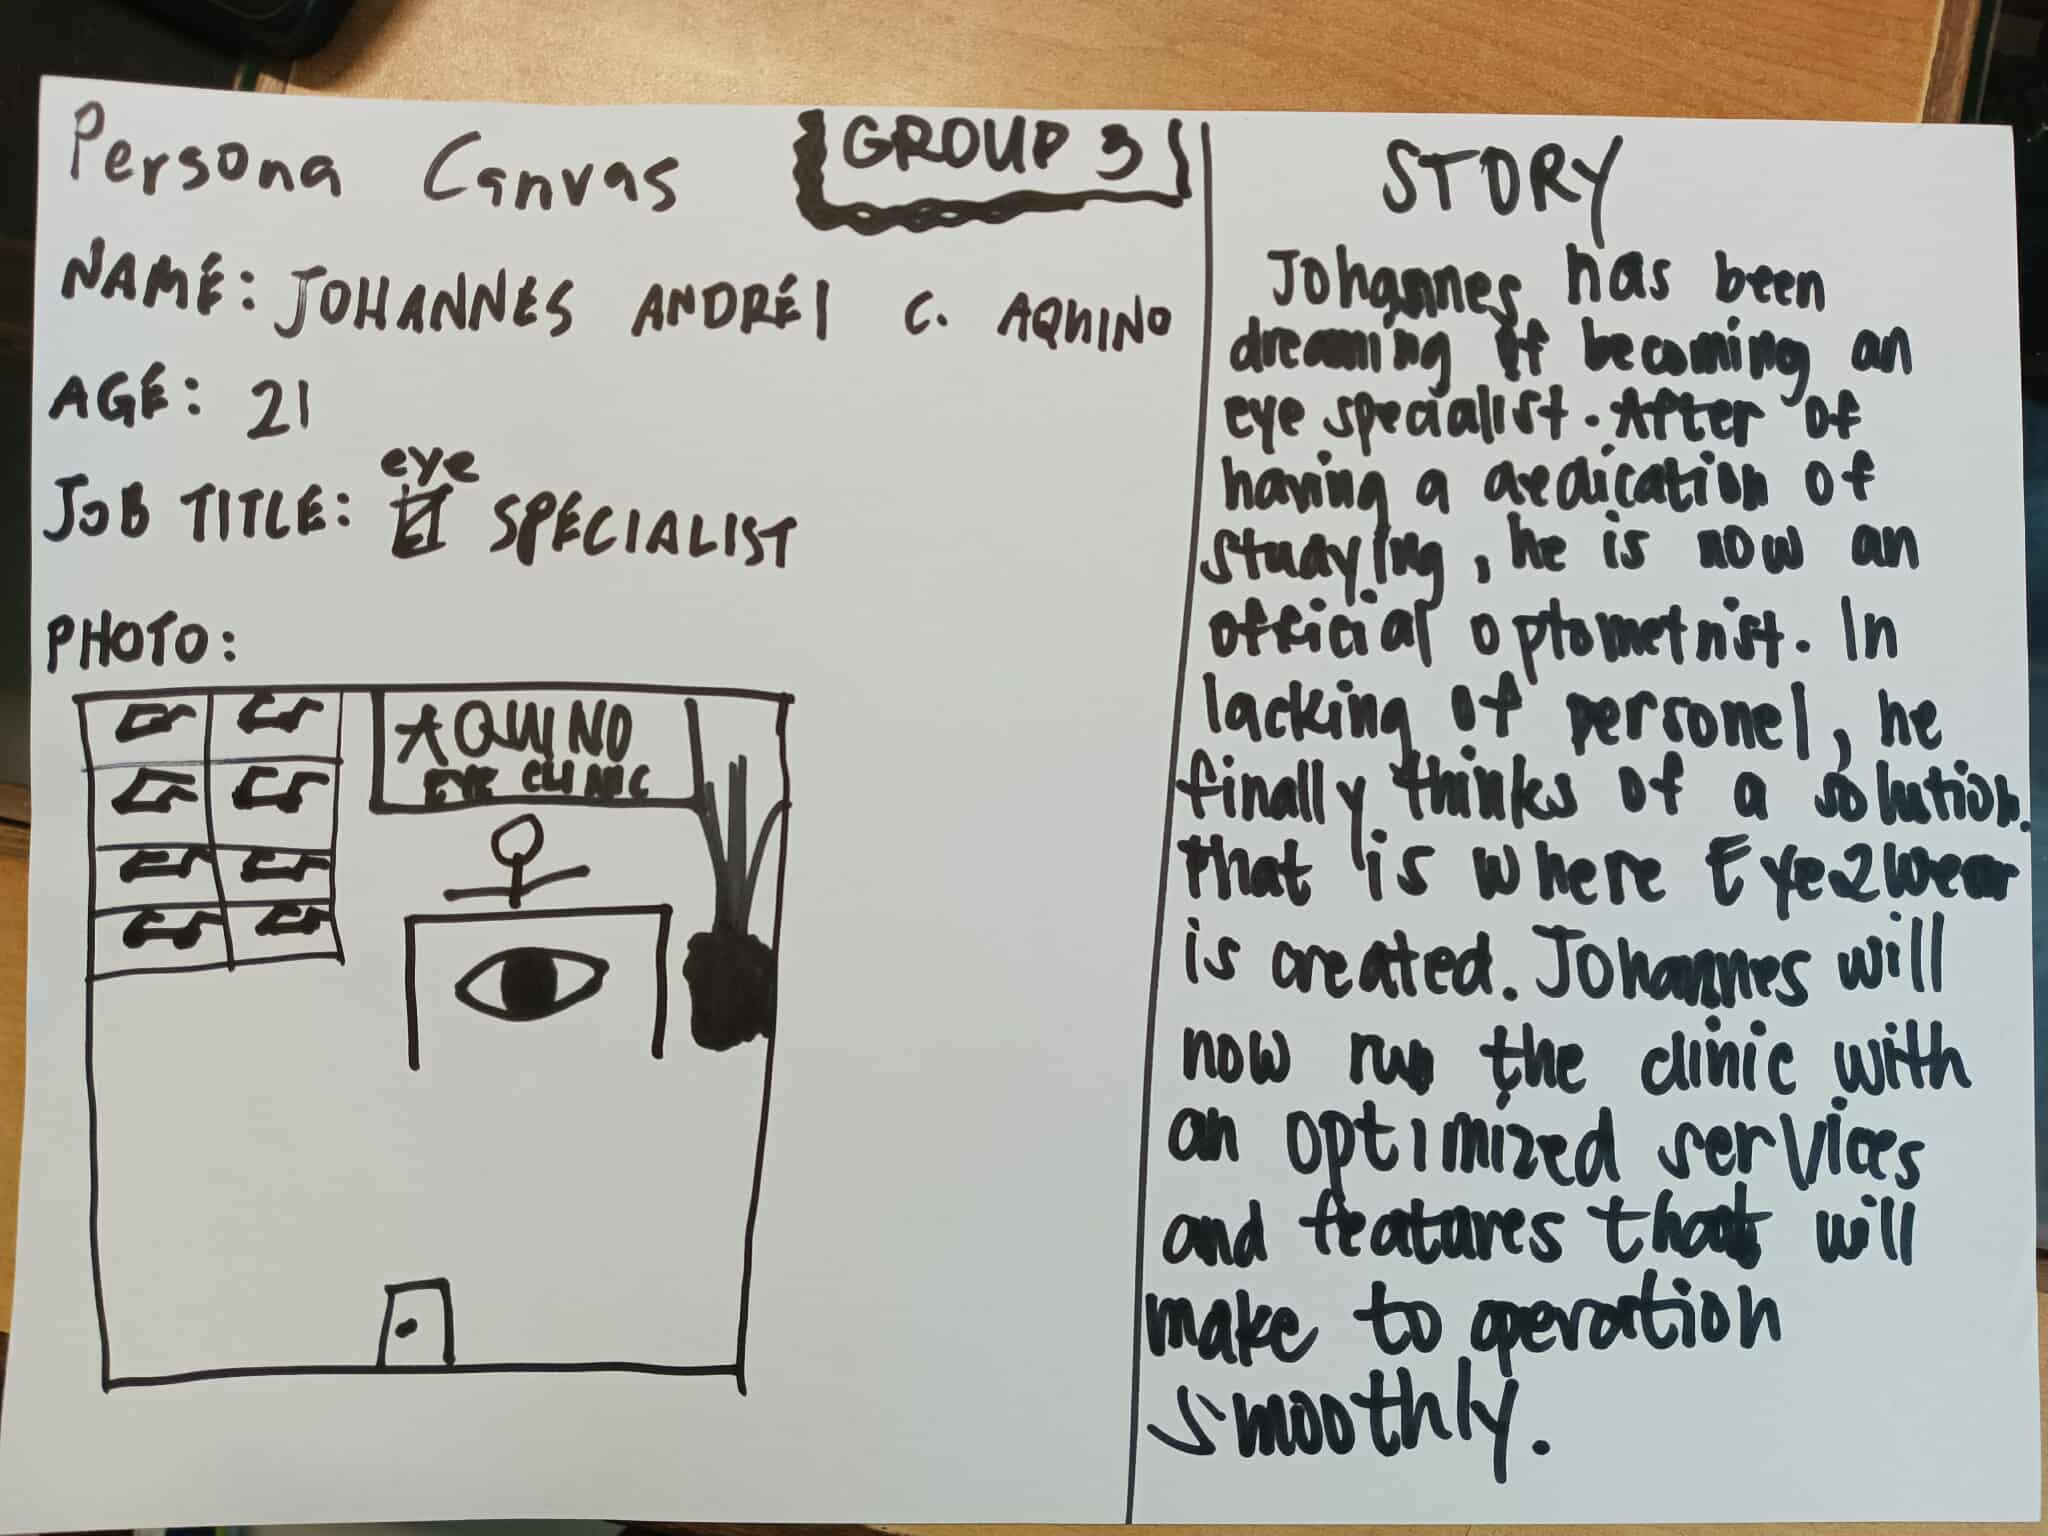 Persona Canvas
GROUP 3
NAME: JOHANNES ANDREI C. AQUINO
AGE: 21
JOB TITLE: eye SPECIALIST
PHOTO:
AQUINO
EYE CLINIC
STORY
Johannes has been
dreaming of becoming an
eye specialist. After of
having a dedication of
studying, he is now an
official optometrist. In
lacking of personel, he
finally thinks of a solution.
that is where Eye2Wear
is created. Johannes will
now run the clinic with
an optimized services
and features that will
make to operation
smoothly.